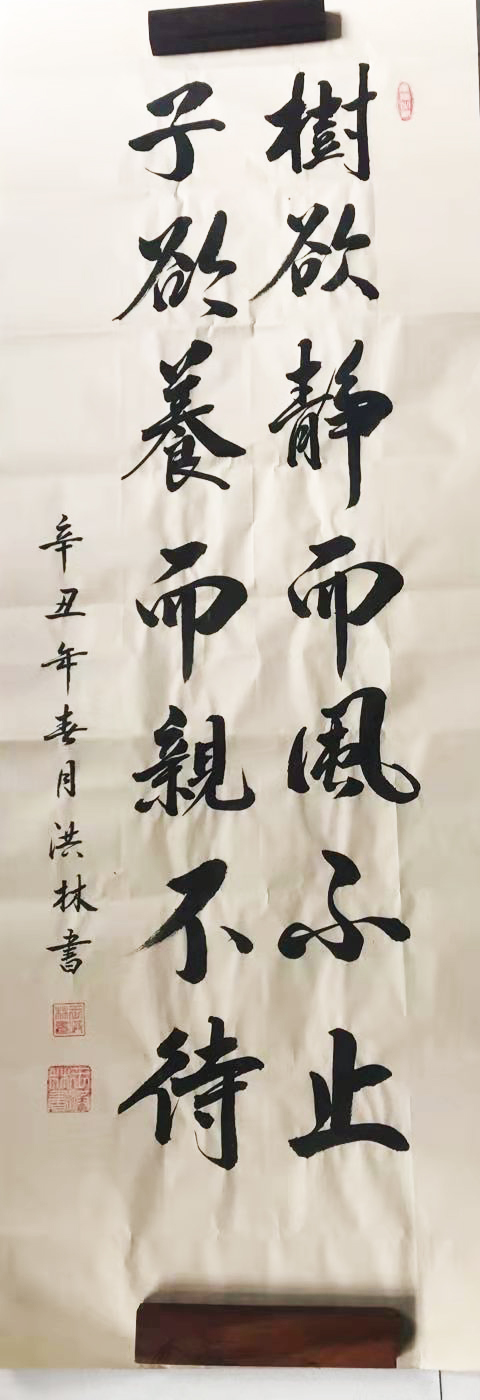 樹欲静而風不止
子欲養而親不待
辛丑年春月洪林書